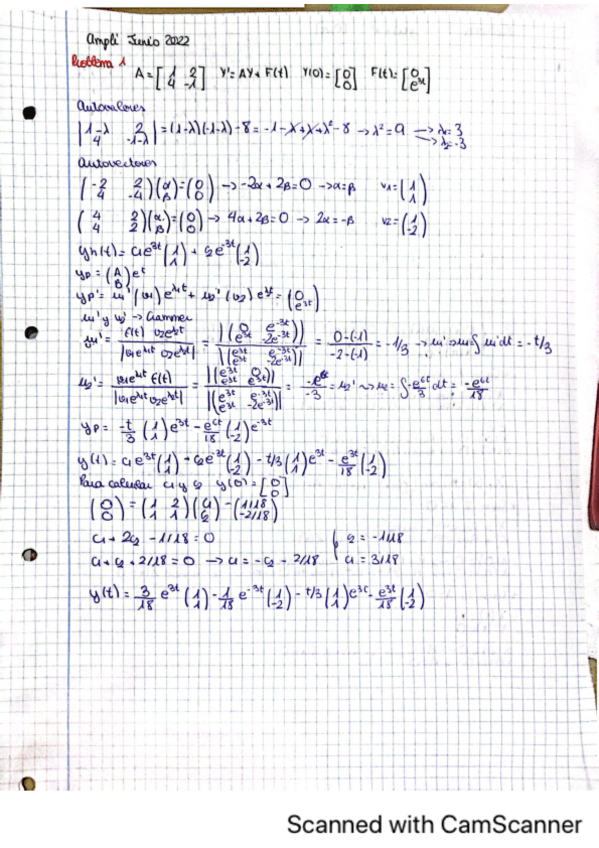 Ampli Junio 2022
Problema 1
A = [1 2; 4 -1] Y' = AY + F(t) Y(0) = [0; 0] F(t) = [0; e^3t]
Autovalores
|1-λ 2; 4 -1-λ| = (1-λ)(-1-λ) - 8 = -1 - λ + λ + λ² - 8 → λ² = 9 → λ1 = 3
→ λ2 = -3
Autovectores
(-2 2; 4 -4)(α; β) = (0; 0) → -2α + 2β = 0 → α = β v1 = (1; 1)
(4 2; 4 2)(α; β) = (0; 0) → 4α + 2β = 0 → 2α = -β v2 = (1; -2)
yh(t) = c1e^3t (1; 1) + c2e^-3t (1; -2)
yp = (A; B) e^t
yp' = u1' (v1) e^λ1t + u2' (v2) e^λ2t = (0; e^3t)
u1' y u2' → Crammer
u1' = |f(t) v2e^λ2t| / |v1e^λ1t v2e^λ2t| = |(0 e^-3t; e^3t -2e^-3t)| / |(e^3t e^-3t; e^3t -2e^-3t)| = 0-(-1) / -2-(1) = -1/3 → u1' → u1 = ∫ u1' dt = -t/3
u2' = |v1e^λ1t f(t)| / |v1e^λ1t v2e^λ2t| = |(e^3t 0; e^3t e^3t)| / |(e^3t e^-3t; e^3t -2e^-3t)| = -e^6t / -3 = u2' → u2 = ∫ -e^6t/3 dt = -e^6t/18
yp = -t/3 (1; 1) e^3t - e^6t/18 (1; -2) e^-3t
y(t) = c1e^3t (1; 1) + c2e^-3t (1; -2) - t/3 (1; 1) e^3t - e^3t/18 (1; -2)
Para calcular c1 y c2 y(0) = [0; 0]
(0; 0) = (1 2; 1 1)(c1; c2) - (1/18; -2/18)
c1 + 2c2 - 1/18 = 0 c2 = -1/18
c1 + c2 + 2/18 = 0 → c1 = -c2 - 2/18 c1 = 3/18
y(t) = 3/18 e^3t (1; 1) - 1/18 e^-3t (1; -2) - t/3 (1; 1) e^3t - e^3t/18 (1; -2)
Scanned with CamScanner